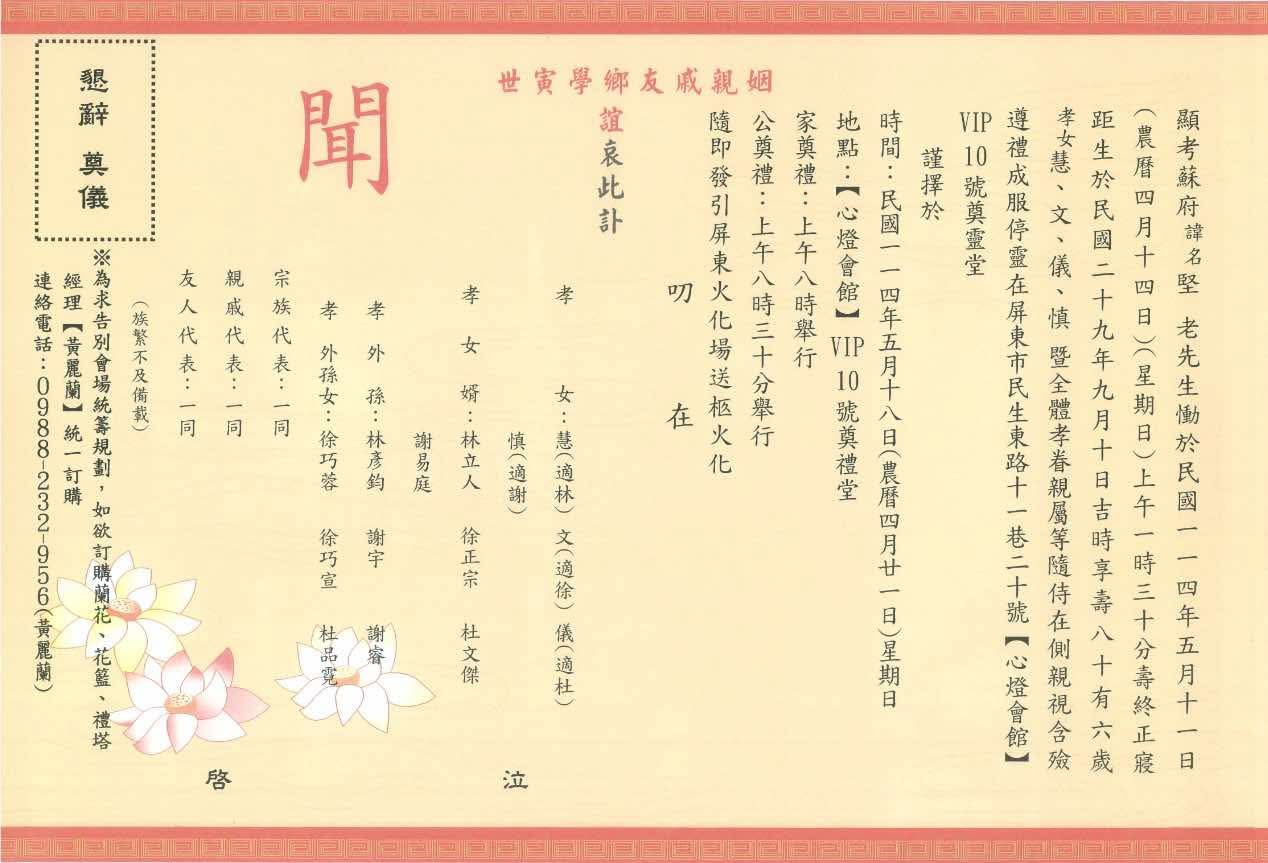 顯考蘇府諱名堅 老先生慟於民國一一四年五月十一日
(農曆四月十四日)(星期日)上午一時三十分壽終正寢
距生於民國二十九年九月十日吉時享壽八十有六歲
孝女慧、文、儀、慎 暨全體孝眷親屬等隨侍在側親視含殮
遵禮成服停靈在屏東市民生東路十一巷二十號【心燈會館】
VIP 10 號奠靈堂
謹擇於
時間:民國一一四年五月十八日(農曆四月廿一日)星期日
地點:【心燈會館】VIP 10 號奠禮堂
家奠禮:上午八時舉行
公奠禮:上午八時三十分舉行
隨即發引屏東火化場送柩火化
叨 在
世寅學鄉友戚親姻
誼哀此訃
聞
孝 女:慧(適林) 文(適徐) 儀(適杜)
慎(適謝)
孝 女 婿:林立人 徐正宗 杜文傑
謝易庭
孝 外 孫:林彥鈞 謝宇 謝睿
孝 外孫女:徐巧蓉 徐巧宣 杜品霓
宗族代表:一同
親戚代表:一同
友人代表:一同
(族繁不及備載)
泣
啓
懇辭 奠儀
※為求告別會場統籌規劃,如欲訂購蘭花、花籃、禮塔
經理【黃麗蘭】統一訂購
連絡電話:0988-232-956(黃麗蘭)